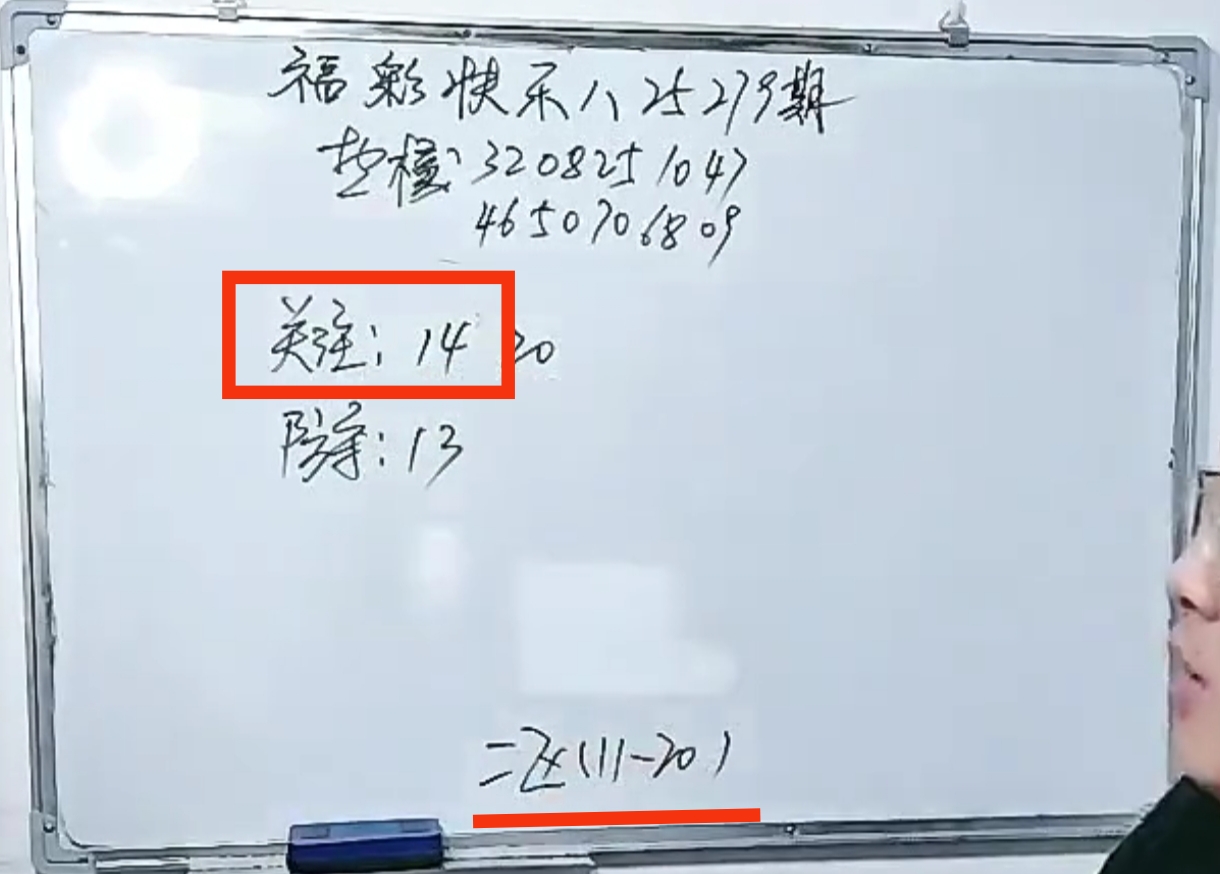 福彩快乐八25279期
模:3208251047
4650706809
关注:14 20
防守:13
二区(11-20)